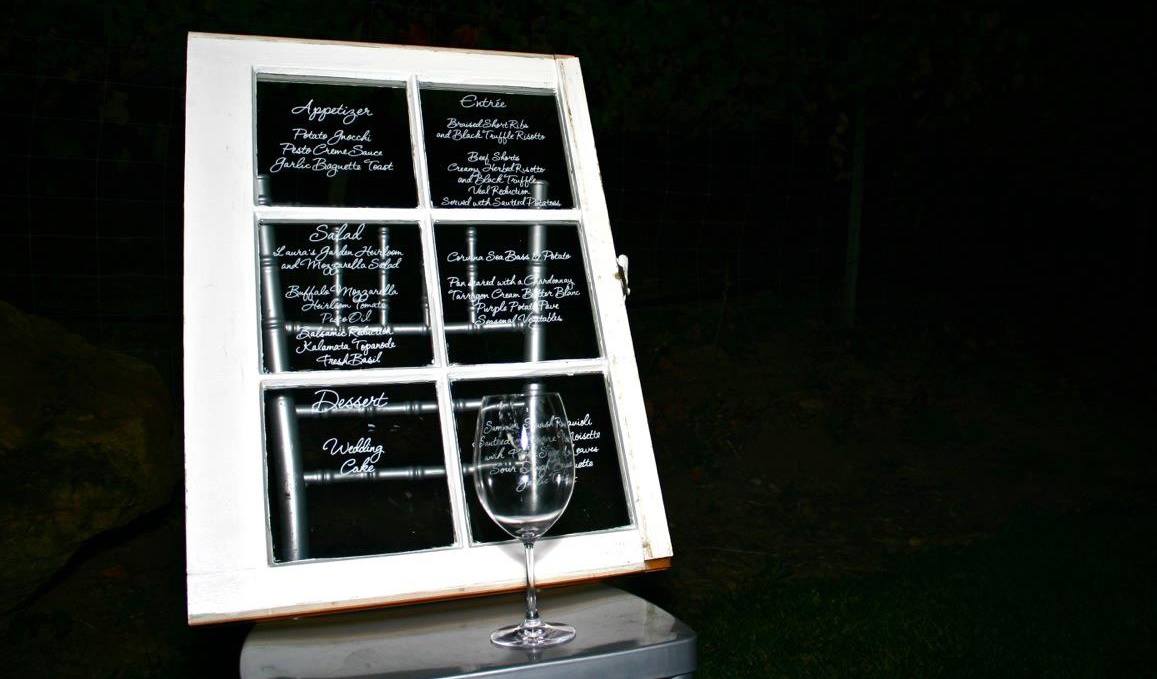 Appetizer
Potato Gnocchi
Pesto Creme Sauce
Garlic Baguette Toast
Salad
Laura's Garden Heirloom
and Mozzarella Salad
Buffalo Mozzarella
Heirloom Tomato
Oil
Balsamic Reduction
Kalamata Topanode
Fresh Basil
Dessert
Wedding
Cake
Entrée
Braised Short Ribs
and Black Truffle Risotto
Beef Shorts
Creamy Herbed Risotto
and Black Truffle
Veal Reduction
Served with Sautéed Potatoes
Corvina Sea Bass & Potato
Pan seared with a Chardonnay
Tarragon Cream Butter Blanc
Purple Potato Pave
Seasonal Vegetables
Summer Squash Ravioli
Sautéed
with
Sour